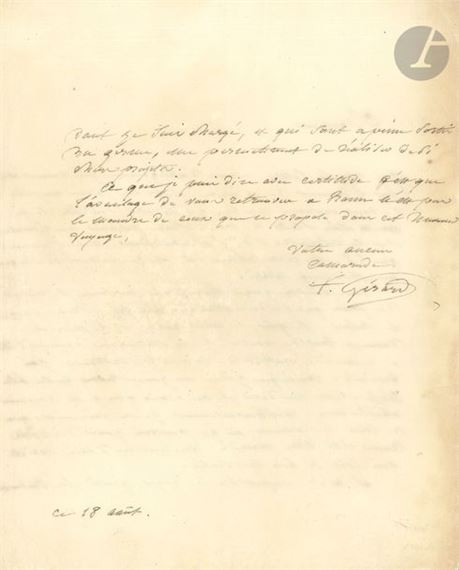 dont je suis chargé, et qui sont a peine sortis
du germe, me permettront de réaliser de si
Ce que je puis dire avec certitude c'est que
l'avantage de vous retrouver a
le moindre de ceux que se propose dans cet heureux
voyage,
Votre ancien
Camarade
F. Gérard
ce 18 août.